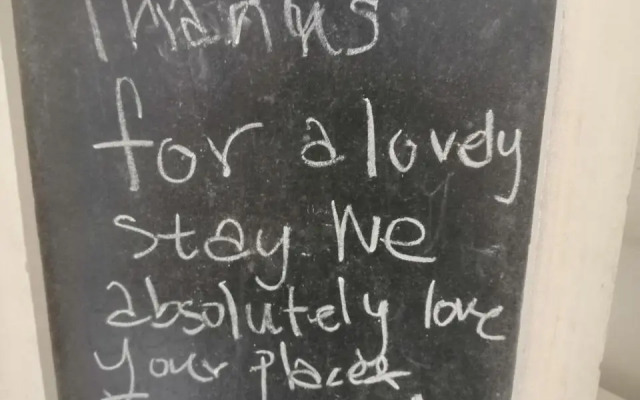 Thanks
for a lovely
stay We
absolutely love
your place